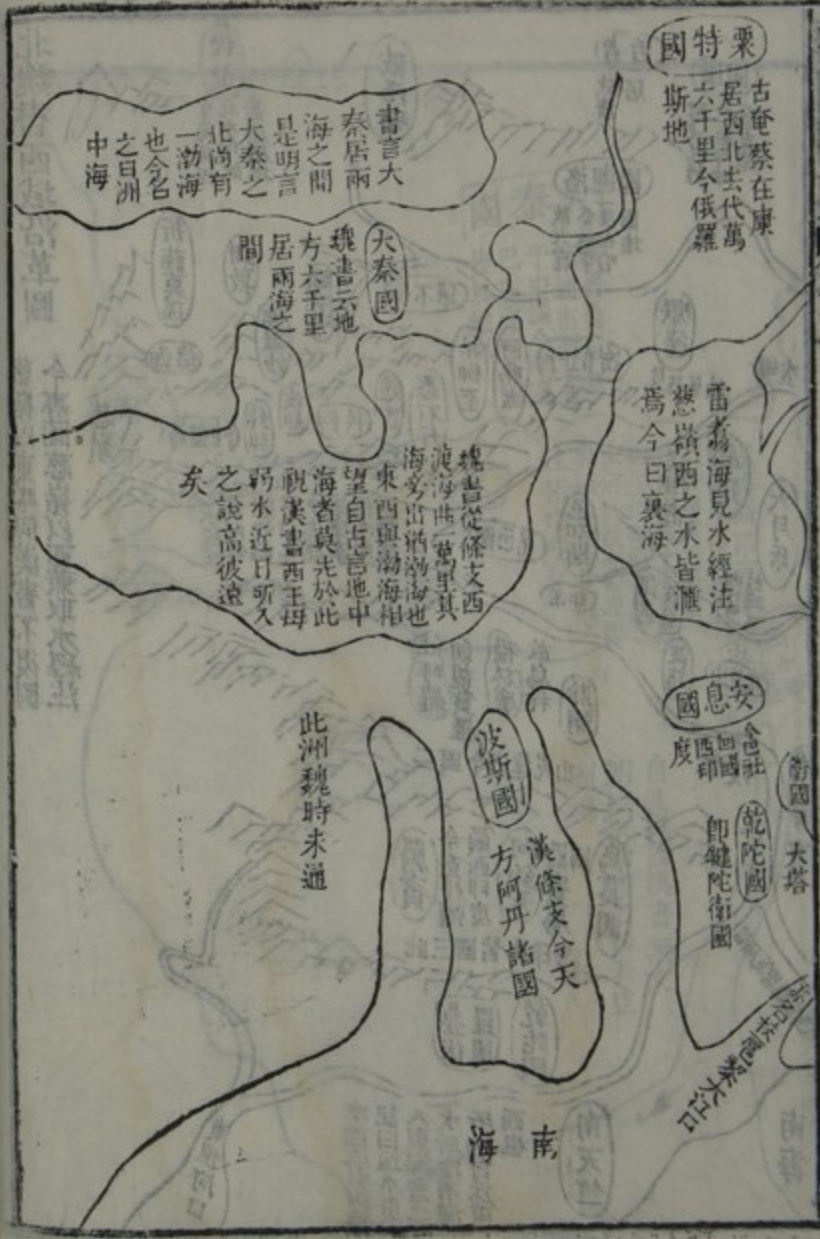 粟特國
古奄蔡在康
居西北去代萬
六千里今俄羅
斯地
書言大
秦居兩
海之間
是明言
大秦之
北尚有
一渤海
也今名
之曰洲
中海
大秦國
魏書云地
方六千里
居兩海之
間
雷翥海見水經注
葱嶺西之水皆滙
焉今曰裏海
魏書從條支西
渡海曲一萬里其
海旁出猶渤海也
東西與渤海相
望自古言地中
海者莫先於此
視漢書西王母
弱水近日所入
之說高彼遠
矣
安息國
回國
西印
度
波斯國
漢條支今天
方阿丹諸國
乾陀國
即犍陀衛國
大塔
此洲魏時未通
名扶
黎大江口
南海